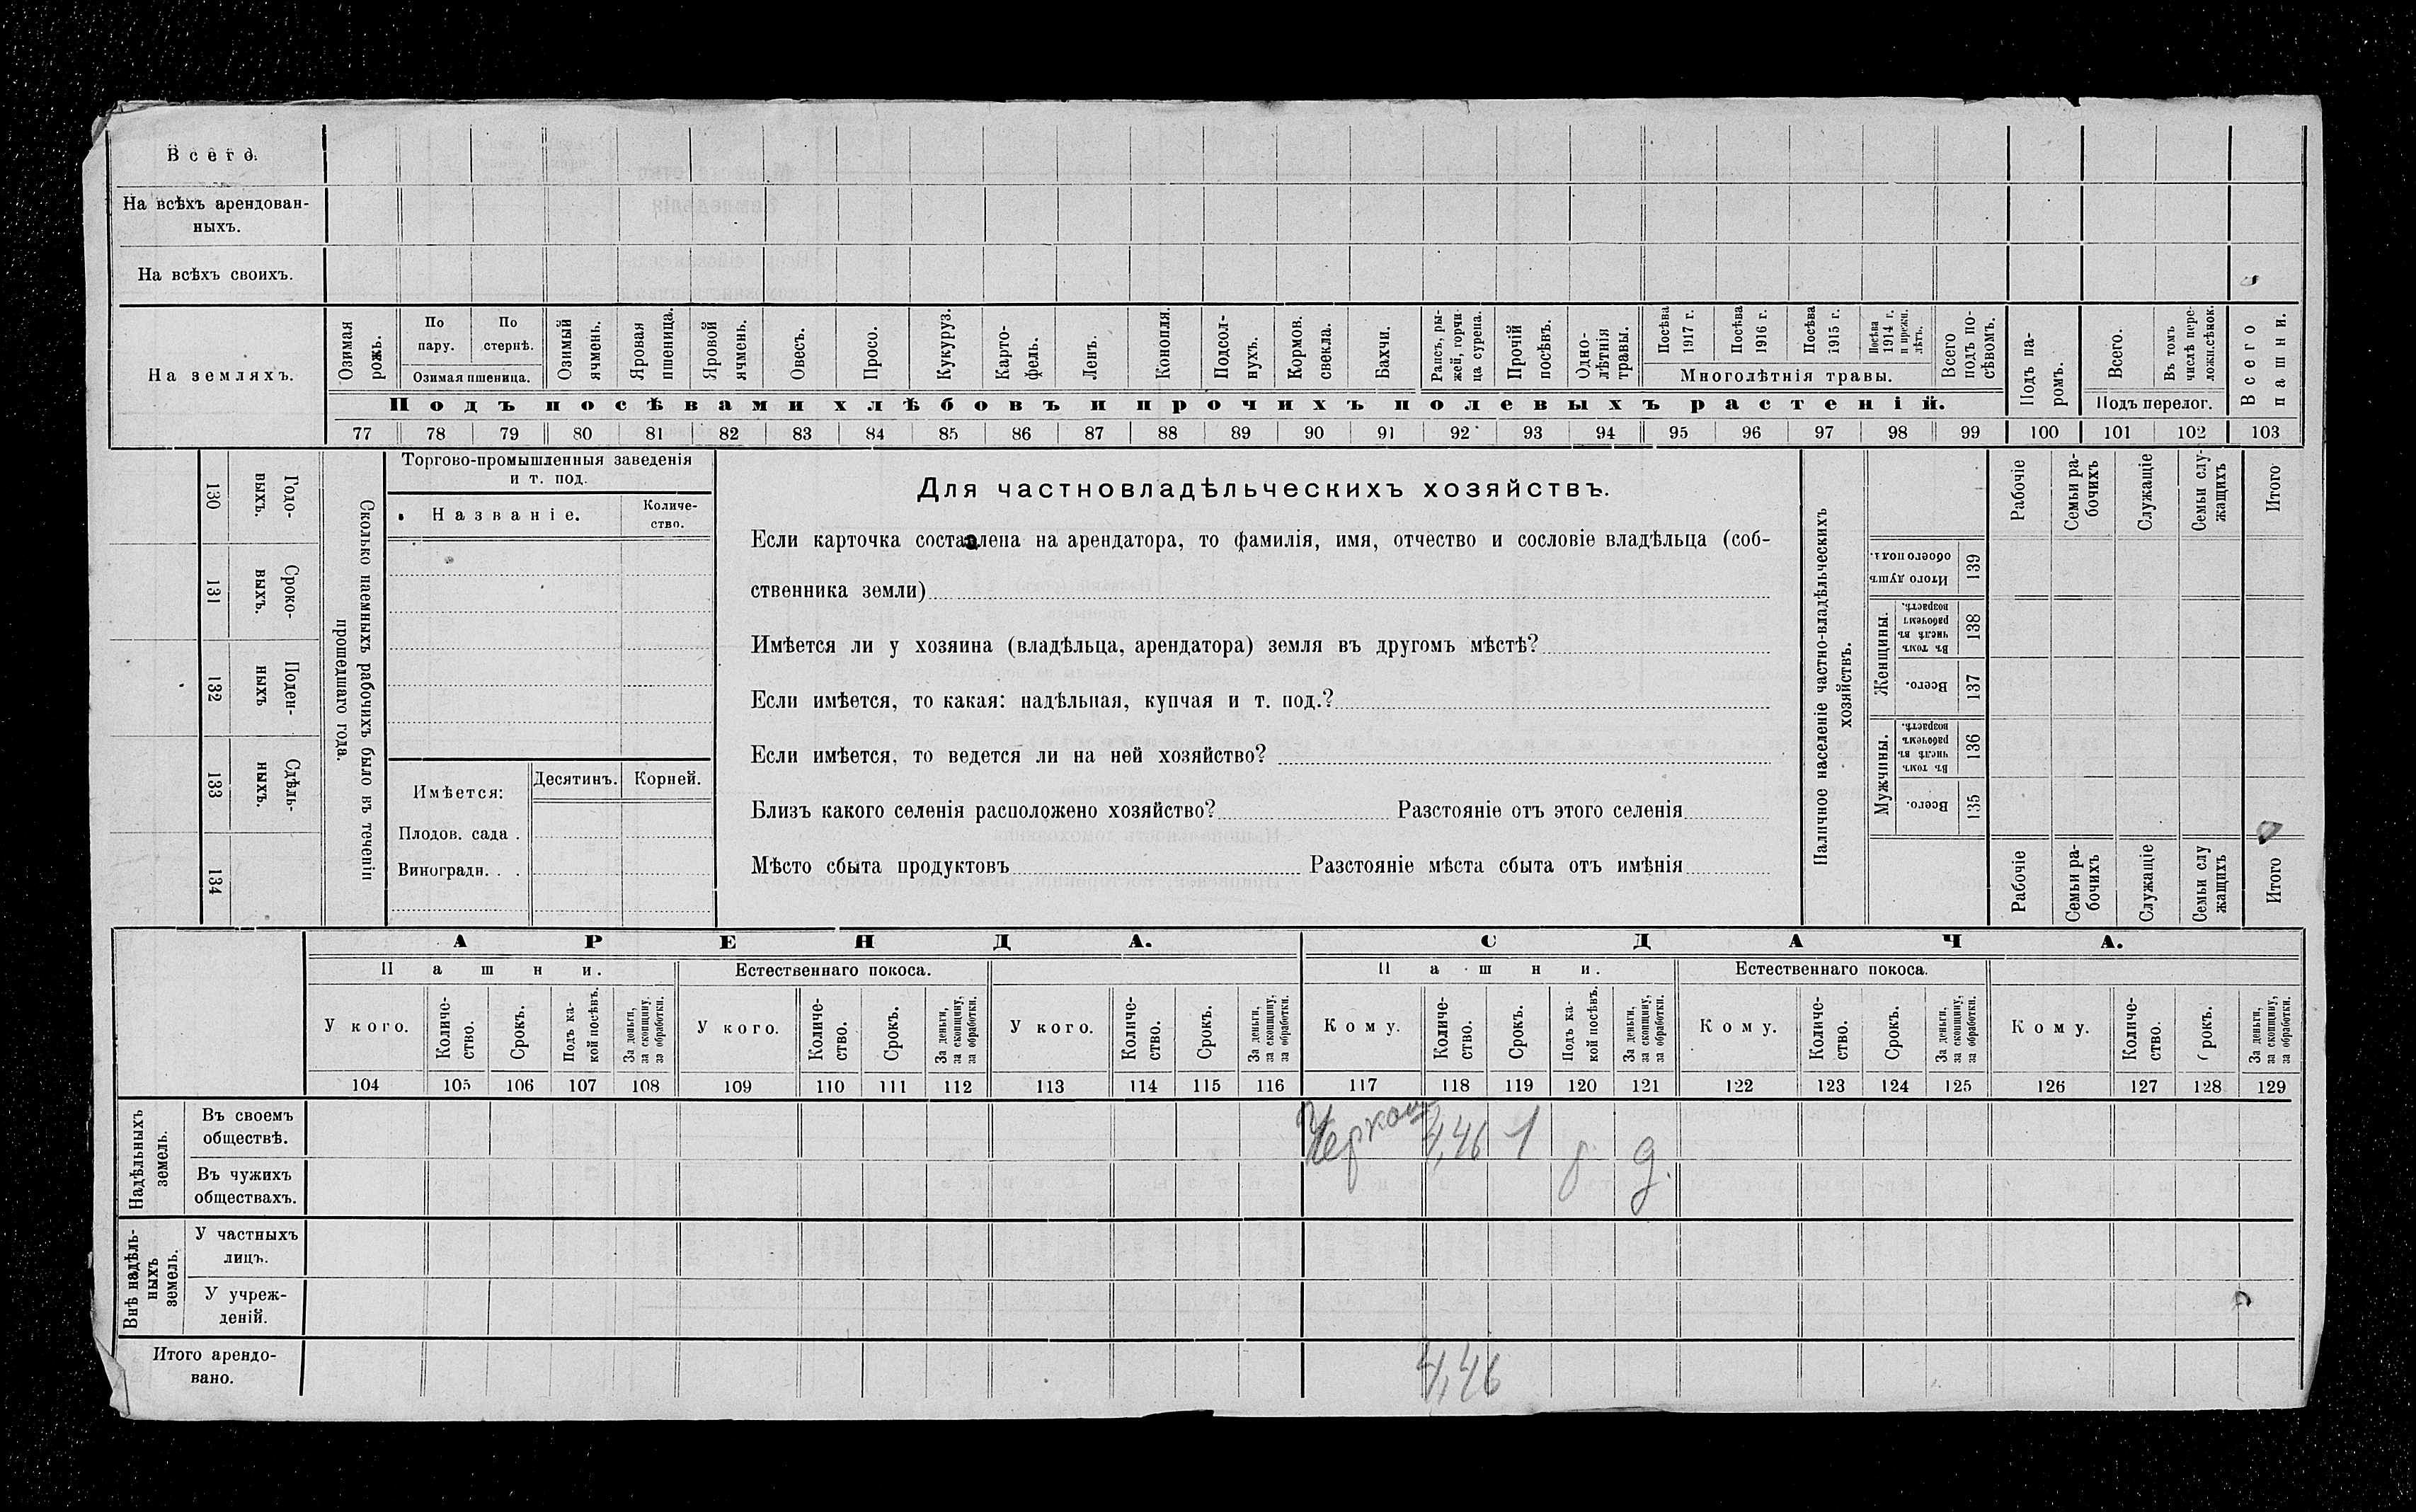 Всего.
На всѣхъ арендован-
ныхъ.
На всѣхъ своихъ.
На земляхъ.
Озимая рожь.
По пару.
По стернѣ.
Озимая пшеница.
Озимый ячмень.
Яровая пшеница.
Яровой ячмень.
Овесъ.
Просо.
Кукуруз.
Карто-
фель.
Ленъ.
Конопля.
Подсол-
нухъ.
Кормов.
свекла.
Бахчи.
Рапсъ, ры-
жей, горчи-
ца сурепа.
Прочій
посѣвъ.
Одно-
лѣтнія
травы.
Посѣва
1917 г.
Посѣва
1916 г.
Посѣва
1915 г.
Посѣва
1914 г.
и прежн.
лѣтъ.
Многолѣтнія травы.
Всего
подъ по-
сѣвомъ.
Подъ па-
ромъ.
Всего.
Въ томъ
числѣ пере-
ложн.сѣнок.
Подъ перелог.
Всего
пашни.
Подъ посѣвами хлѣбовъ и прочихъ полевыхъ растеній.
77 78 79 80 81 82 83 84 85 86 87 88 89 90 91 92 93 94 95 96 97 98 99 100 101 102 103
130
Годо-
выхъ.
131
Сроко-
выхъ.
132
Поден-
ныхъ
133
Сдѣль-
ныхъ.
134
Сколько наемныхъ рабочихъ было въ теченіи
прошедшаго года.
Торгово-промышленныя заведенія
и т. под.
Названіе.
Количе-
ство.
Имѣется:
Десятинъ.
Корней.
Плодов. сада .
Виноградн. . .
Для частновладѣльческихъ хозяйствъ.
Если карточка составлена на арендатора, то фамилія, имя, отчество и сословіе владѣльца (соб-
ственника земли)
Имѣется ли у хозяина (владѣльца, арендатора) земля въ другомъ мѣстѣ?
Если имѣется, то какая: надѣльная, купчая и т. под.?
Если имѣется, то ведется ли на ней хозяйство?
Близъ какого селенія расположено хозяйство? Разстояніе отъ этого селенія
Мѣсто сбыта продуктовъ Разстояніе мѣста сбыта отъ имѣнія
Наличное населеніе частно-владѣльческихъ
хозяйствъ.
Рабочіе
Семьи ра-
бочихъ
Служащіе
Семьи слу-
жащихъ
Итого
Итого душъ
обоего пола.
139
Женщины.
Въ томъ
числѣ въ
рабочемъ
возрастѣ.
138
Всего.
137
Мужчины.
Въ томъ
числѣ въ
рабочемъ
возрастѣ.
136
Всего.
135
Рабочіе
Семьи ра-
бочихъ
Служащіе
Семьи слу
жащихъ
Итого
АРЕНДА.
СДАЧА.
Пашни.
Естественнаго покоса.
Пашни.
Естественнаго покоса.
У кого.
Количе-
ство.
Срокъ.
Подъ ка-
кой посѣвъ.
За деньги,
за скопщину,
за обработки.
У кого.
Количе-
ство.
Срокъ.
За деньги,
за скопщину,
за обработки.
У кого.
Количе-
ство.
Срокъ.
За деньги,
за скопщину,
за обработки.
Кому.
Количе-
ство.
Срокъ.
Подъ ка-
кой посѣвъ.
За деньги,
за скопщину,
за обработки.
Кому.
Количе-
ство.
Срокъ.
За деньги,
за скопщину,
за обработки.
Кому.
Количе-
ство.
Срокъ.
За деньги,
за скопщину,
за обработки.
104 105 106 107 108 109 110 111 112 113 114 115 116 117 118 119 120 121 122 123 124 125 126 127 128 129
Надѣльныхъ
земель.
Въ своемъ
обществѣ.
4,46 1 д.
Въ чужихъ
обществахъ.
Внѣ надѣль-
ныхъ
земель.
У частныхъ
лицъ.
У учреж-
деній.
Итого арендо-
вано.
4,46